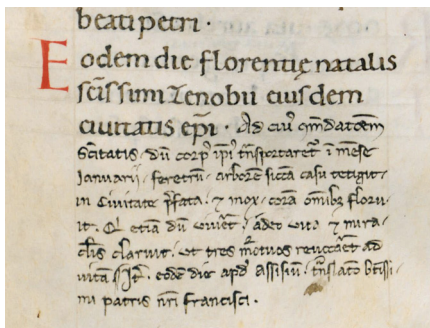 beati petri ·
Eodem die florentię natalis
sc̄issimi Zenobii eiusdem
ciuitatis ep̄i · Ad cuiꝰ q̄mdatōem
Sc̄titatis · dū corpꝰ ip̄i tn̄sportaret᷑ ī mēse
Ianuarij · feretrū · arborē siccā casu tetigit ·
in Ciuitate p̄fata · ⁊ mox · corā omībꝫ floru-
it · Q etiā dū uiuēt · adeo uita ⁊ mira-
cl̄is claruit · ut tres mortuos reuocāet ad
uitā · eodē die apd̄ assisiū · tn̄slatō btissi-
mi patris nr̄i francisci ·